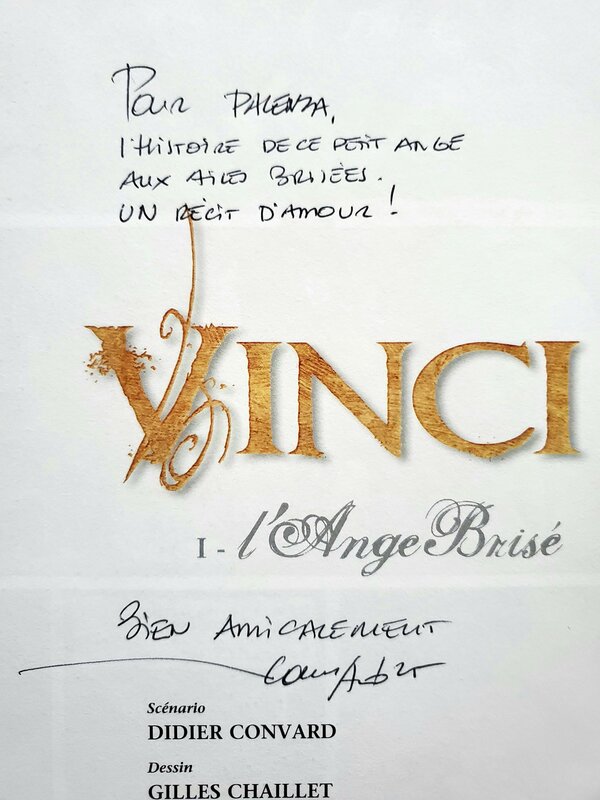 Pour PALENZA,
l'HISTOIRE DE CE PETIT ANGE
AUX AILES BRISÉES.
UN RÉCIT D'AMOUR !
VINCI
I - l'Ange Brisé
BIEN AMICALEMENT
Scénario
DIDIER CONVARD
Dessin
GILLES CHAILLET